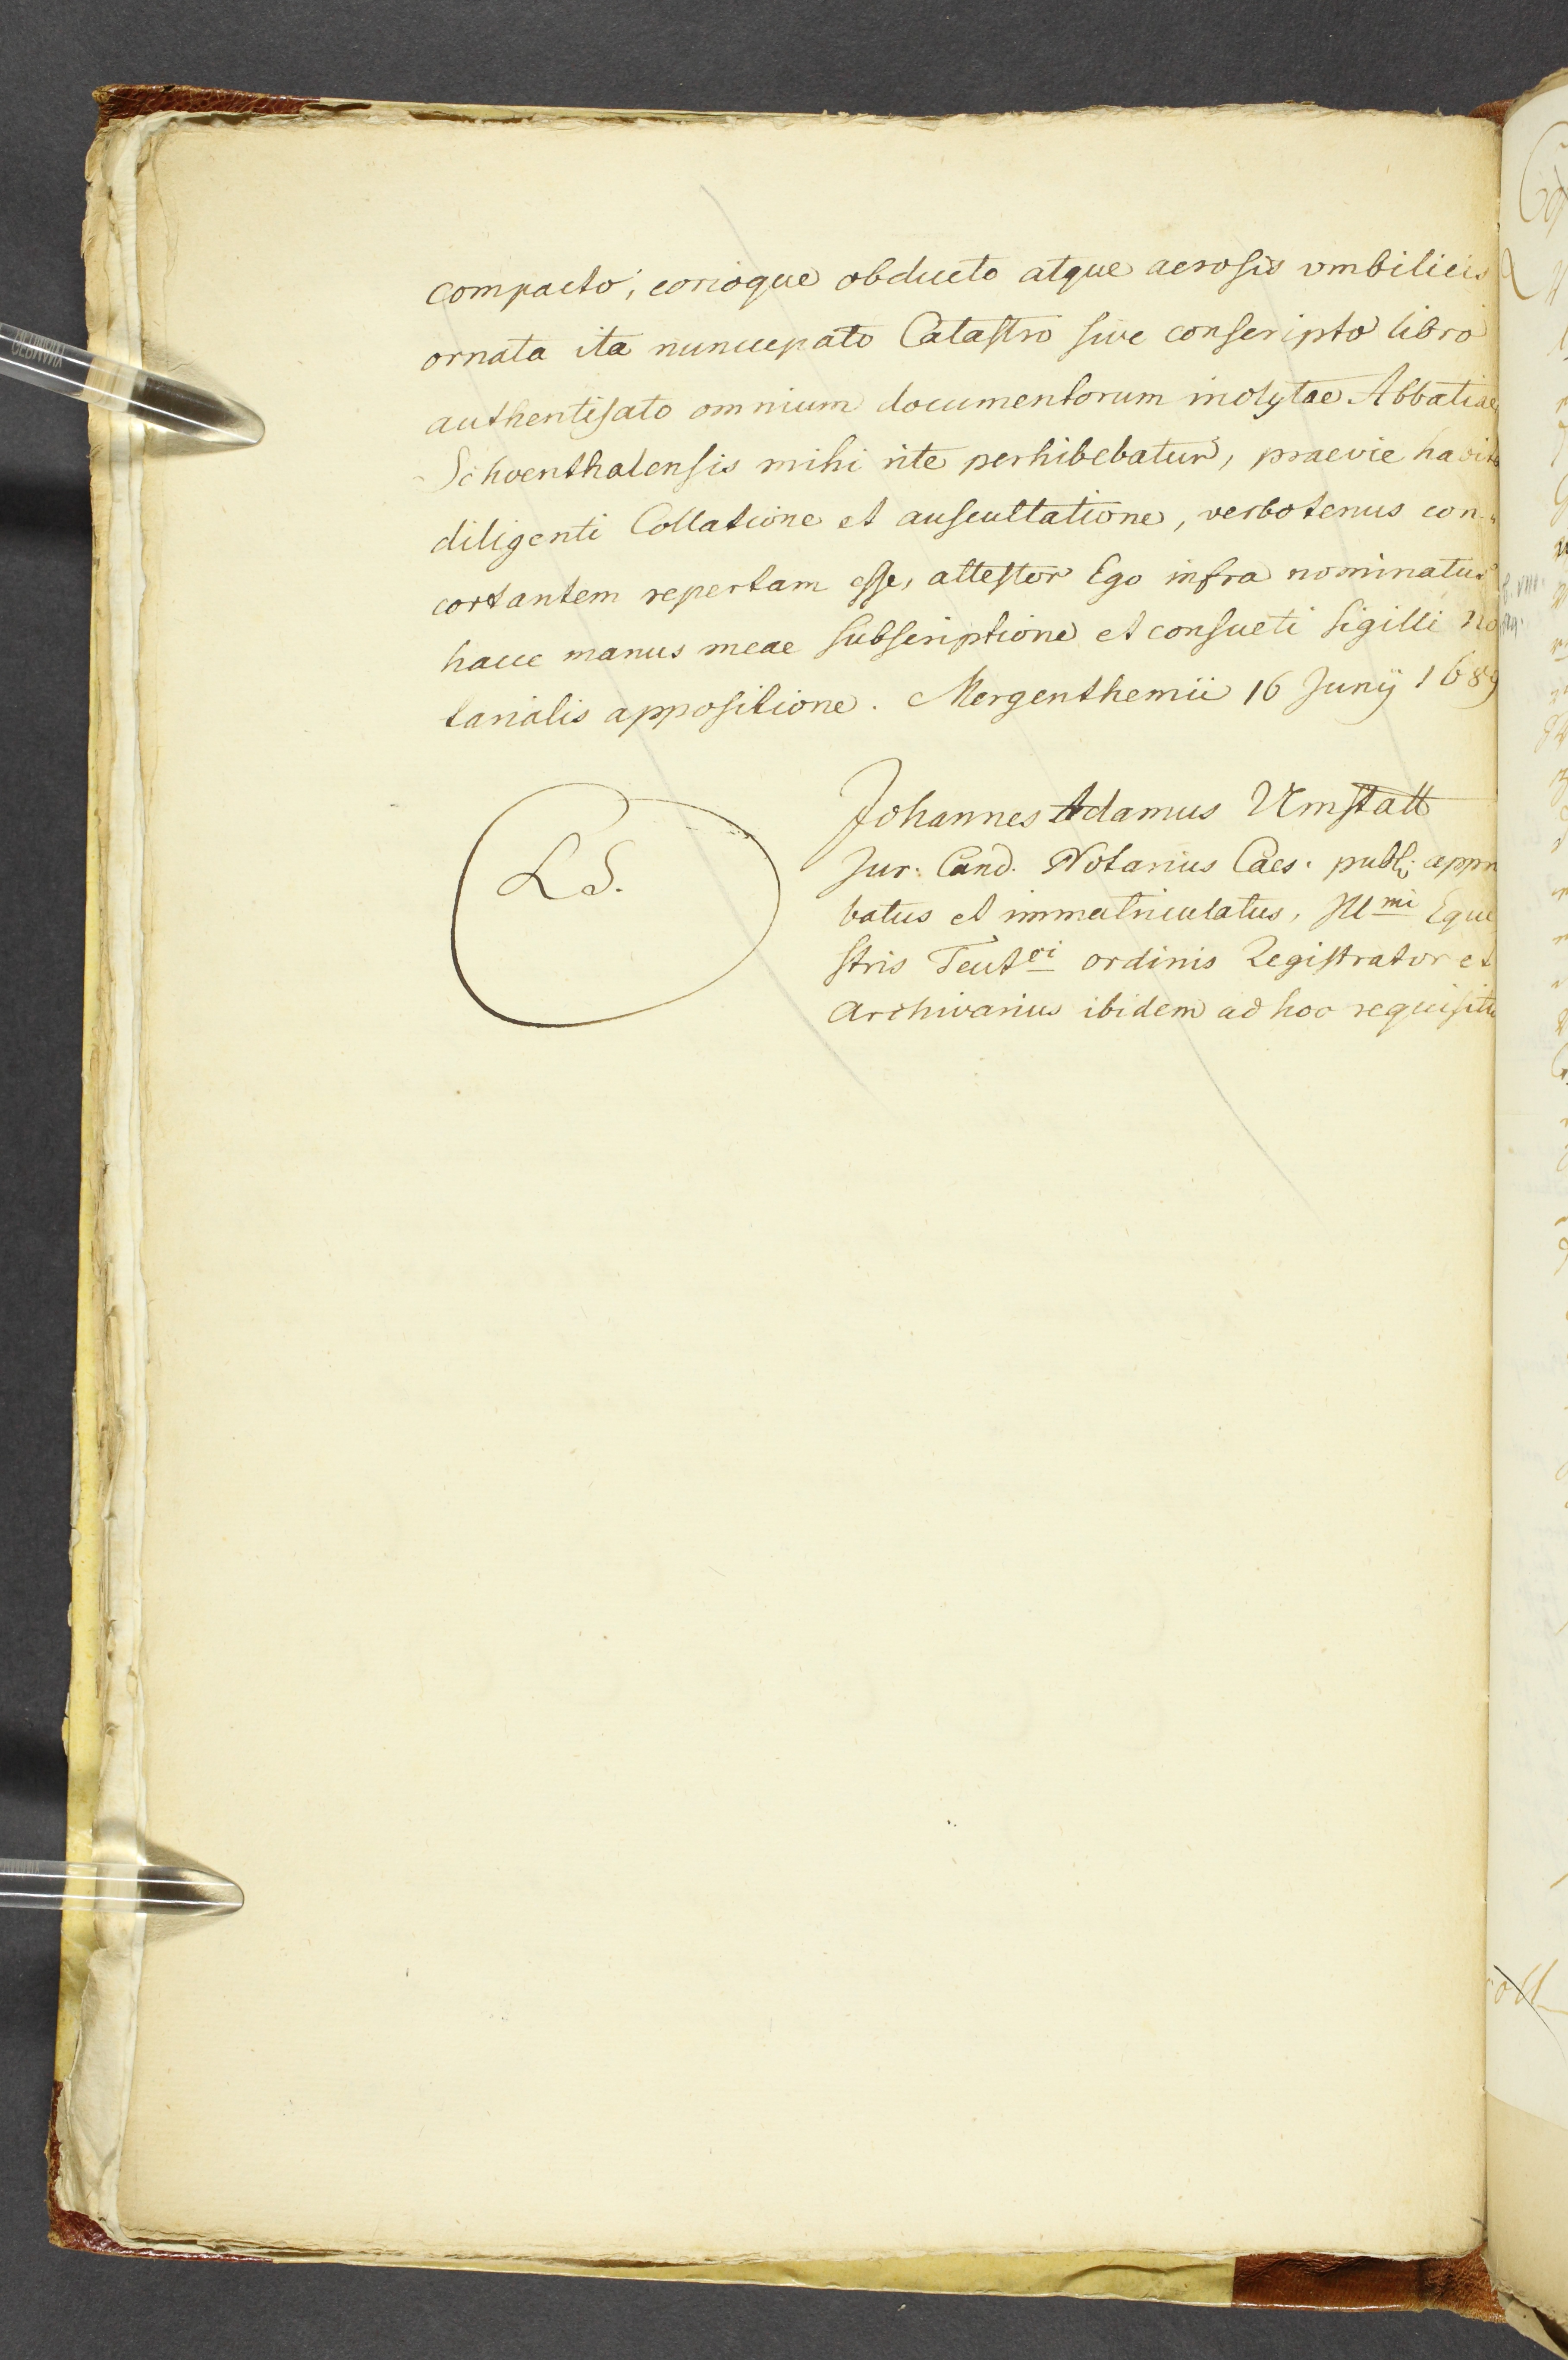 compacto, corioque obducto atque aerosis umbilicis
ornata ita nuncupato Catastro sive conscripto libro
authentisato omnium documentorum inclytae Abbatiae
Schoenthalensis mihi rite perhibebatur, praevie habita
diligenti Collatione et auscultatione, verbotenus con-
cortantem repertam esse, attestor Ego infra nominatus
hacce manus meae subscriptione et consueti Sigilli No
tarialis appositione. Mergenthemii 16 Junÿ 1689
L S.
Johannes Adamus Umstatt
Jur. Cand. Notarius Caes. publ: appro
batus et immatriculatus, Illmi Eque
stris Teutci ordinis Registrator et
Archivarius ibidem ad hoc requisitu